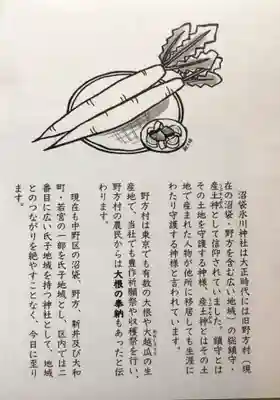 沼袋氷川神社は大正時代には旧野方村（現
在の沼袋・野方を含む広い地域）の総鎮守・
産土神として信仰されていました。鎮守とは
その土地を守護する神様、産土神とはその土
地で産まれた人物が他所に移居しても生涯に
わたり守護する神様と言われています。
野方村は東京でも有数の大根や木越瓜の生
産地で、当社でも豊作祈願祭や収穫祭を行い、
野方村の農民からは大根の奉納もあったと伝
わります。
現在も中野区の沼袋、野方、新井及び大和
町・若宮の一部を氏子地域とし、区内では二
番目に広い氏子地域を持つ神社として、地域
とのつながりを絶やすことなく、今日に至り
ます。